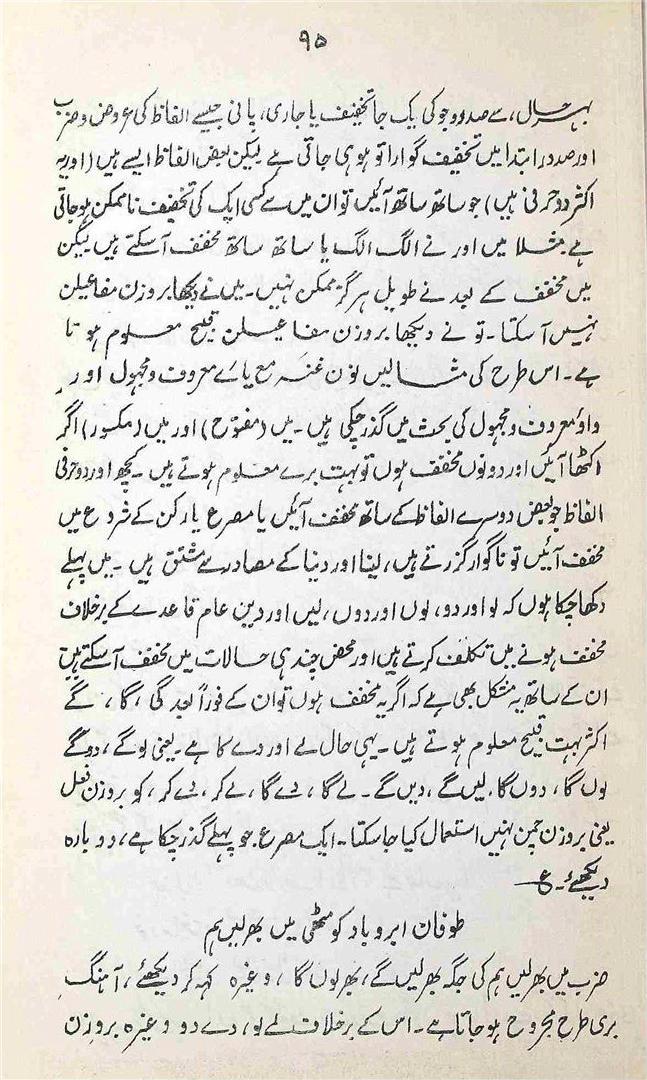 ۹۵
بہر حال، سے صدووجو کی یک جا تخفیف یا جاری، پانی جیسے الفاظ کی عروض و ضرب
اور صدر ابتدا میں تخفیف گوارا تو ہو ہی جاتی ہے لیکن بعض الفاظ ایسے ہیں (اور یہ
اکثر دو حرفی ہیں) جو ساتھ ساتھ آئیں تو ان میں سے کسی ایک کی تخفیف ناممکن ہو جاتی
ہے۔ مثلاً میں اور نے الگ الگ یا ساتھ ساتھ مخفف آ سکتے ہیں لیکن
میں مخفف کے بعد نے طویل ہرگز ممکن نہیں۔ میں نے دیکھا بروزن مفاعیلن
نہیں آ سکتا۔ تو نے دیکھا بروزن مفاعیلن قبیح معلوم ہوتا
ہے۔ اس طرح کی مثالیں نون غنہ مع یائے معروف و مجہول اور
واؤ معروف و مجہول کی بحث میں گذر چکی ہیں۔ میں (مفتوح) اور میں (مکسور) اگر
اکٹھا آئیں اور دونوں مخفف ہوں تو بہت برے معلوم ہوتے ہیں۔ کچھ اور دو حرفی
الفاظ جو بعض دوسرے الفاظ کے ساتھ مخفف آئیں یا مصرع یا رکن کے شروع میں
مخفف آئیں تو ناگوار گزرتے ہیں، لینا اور دنیا کے مصادر سے مشتق ہیں۔ میں پہلے
دکھا چکا ہوں کہ لو اور دو، لوں اور دوں، لیں اور دیں عام قاعدے کے برخلاف
مخفف ہونے میں تکلف کرتے ہیں اور محض چند ہی حالات میں مخفف آ سکتے ہیں
ان کے ساتھ یہ مشکل بھی ہے کہ اگر یہ مخفف ہوں تو ان کے فوراً بعد گی، گا، گے
اکثر بہت قبیح معلوم ہوتے ہیں۔ یہی حال لے اور دے کا ہے۔ یعنی لوگے، دوگے
لوں گا، دوں گا، لیں گے، دیں گے۔ لے گا، دے گا، لے کر، دے کر، کو بروزن فعل
یعنی بروزن چمن نہیں استعمال کیا جا سکتا۔ ایک مصرع جو پہلے گذر چکا ہے، دوبارہ
دیکھئے۔ ع
طوفان ابر و باد کو مٹھی میں بھر لیں ہم
ضرب میں بھر لیں ہم کی جگہ بھر لیں گے، بھر لوں گا، وغیرہ کہہ کر دیکھئے، آہنگ
بری طرح مجروح ہو جاتا ہے۔ اس کے برخلاف لے لو، دے دو وغیرہ بروزن